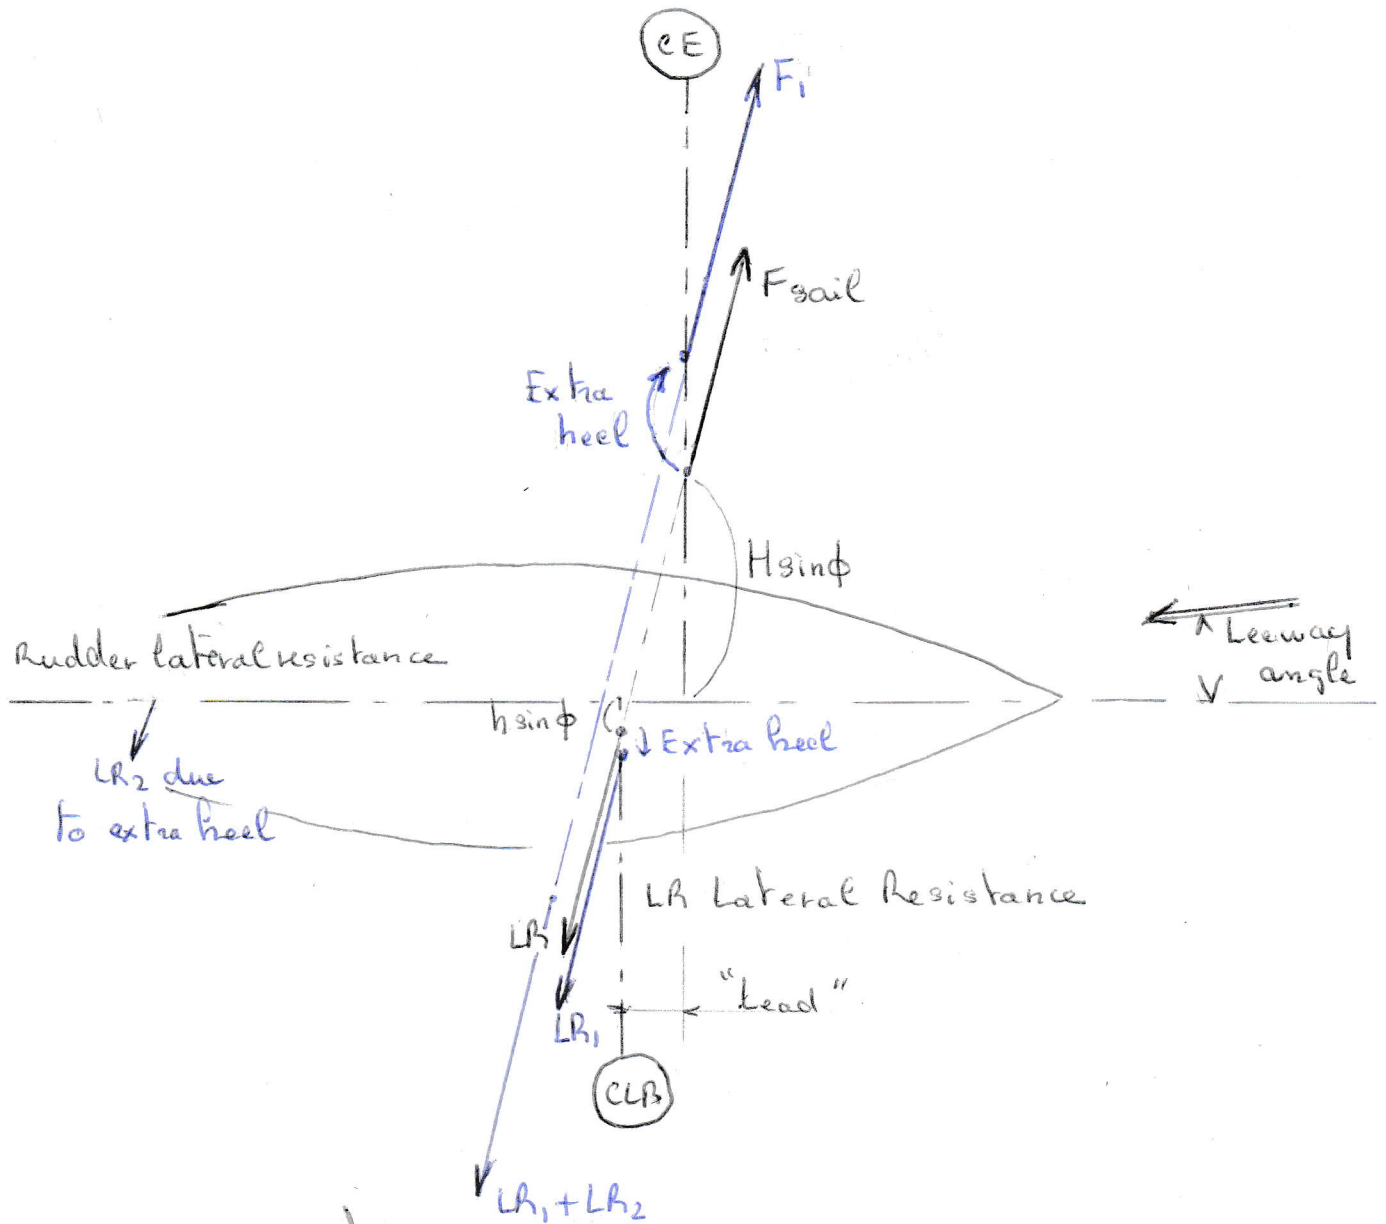 CE
F1
Fsail
Extra
heel
Hsinφ
Leeway
angle
Rudder lateral resistance
hsinφ
Extra heel
LR2 due
to extra heel
LR Lateral Resistance
LR
"Lead"
LR1
CLR
LR1 + LR2